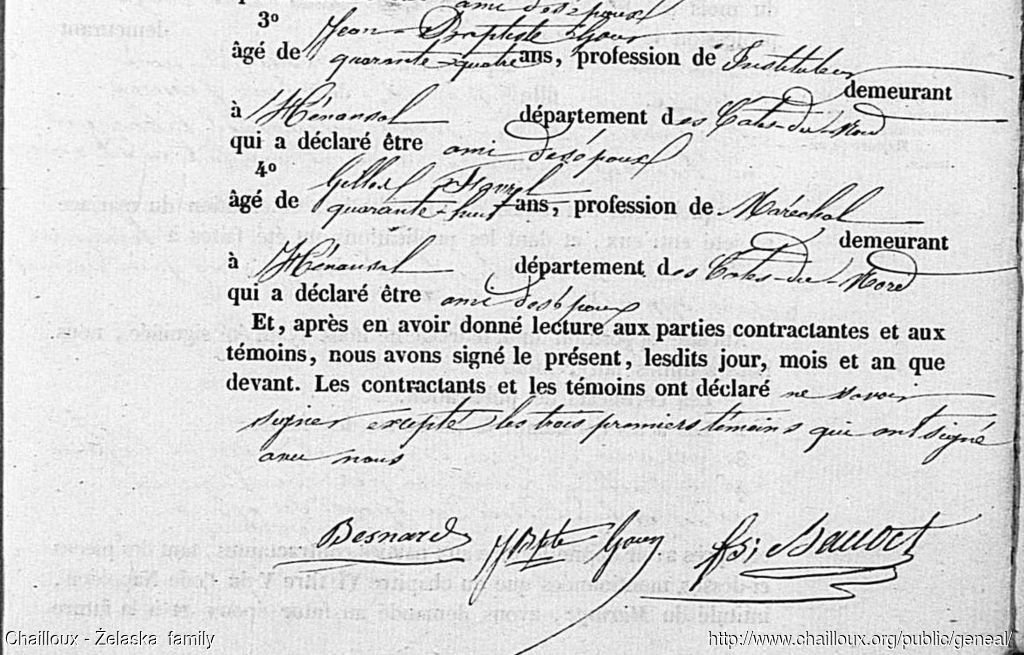 ami des époux
3º Jean-Baptiste Gour
âgé de quarante-quatre ans, profession de Instituteur
demeurant
à Hénansal département des Côtes-du-Nord
qui a déclaré être ami des époux
4º Gilles
âgé de quarante-huit ans, profession de Maréchal
demeurant
à Hénansal département des Côtes-du-Nord
qui a déclaré être ami des époux
Et, après en avoir donné lecture aux parties contractantes et aux
témoins, nous avons signé le présent, lesdits jour, mois et an que
devant. Les contractants et les témoins ont déclaré ne savoir
signer excepté les trois premiers témoins qui ont signé
avec nous
Besnard
Chailloux - Želaska family
http://www.chailloux.org/public/geneal/